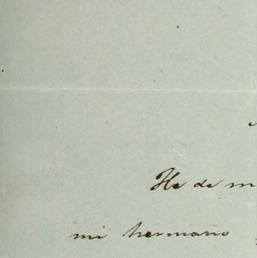 He de m
mi hermano